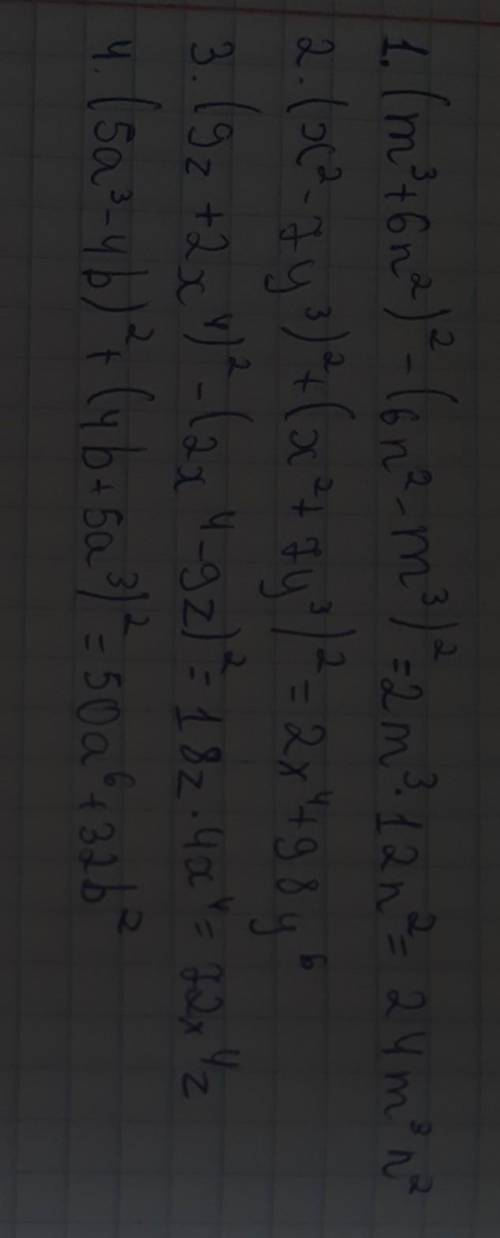 1. (m³+6n²)² - (6n² - m³)² = 2m³ · 12n² = 24m³n²
2. (x² - 7y³)² + (x² + 7y³)² = 2x⁴ + 98y⁶
3. (9z + 2x⁴)² - (2x⁴ - 9z)² = 18z · 4x⁴ = 72x⁴z
4. (5a³ - 4b)² + (4b + 5a³)² = 50a⁶ + 32b²